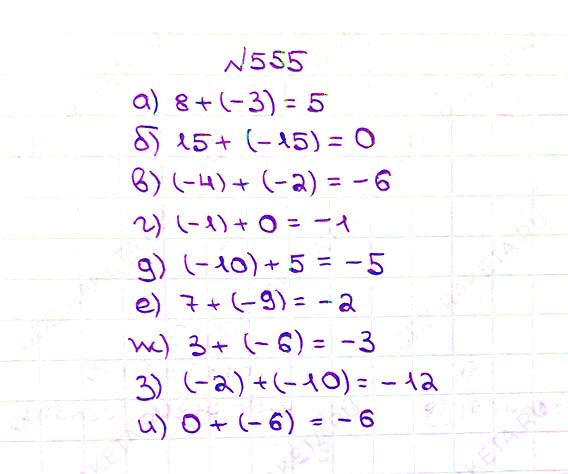 №555
а) 8 + (-3) = 5
б) 15 + (-15) = 0
в) (-4) + (-2) = -6
г) (-1) + 0 = -1
д) (-10) + 5 = -5
е) 7 + (-9) = -2
ж) 3 + (-6) = -3
з) (-2) + (-10) = -12
и) 0 + (-6) = -6